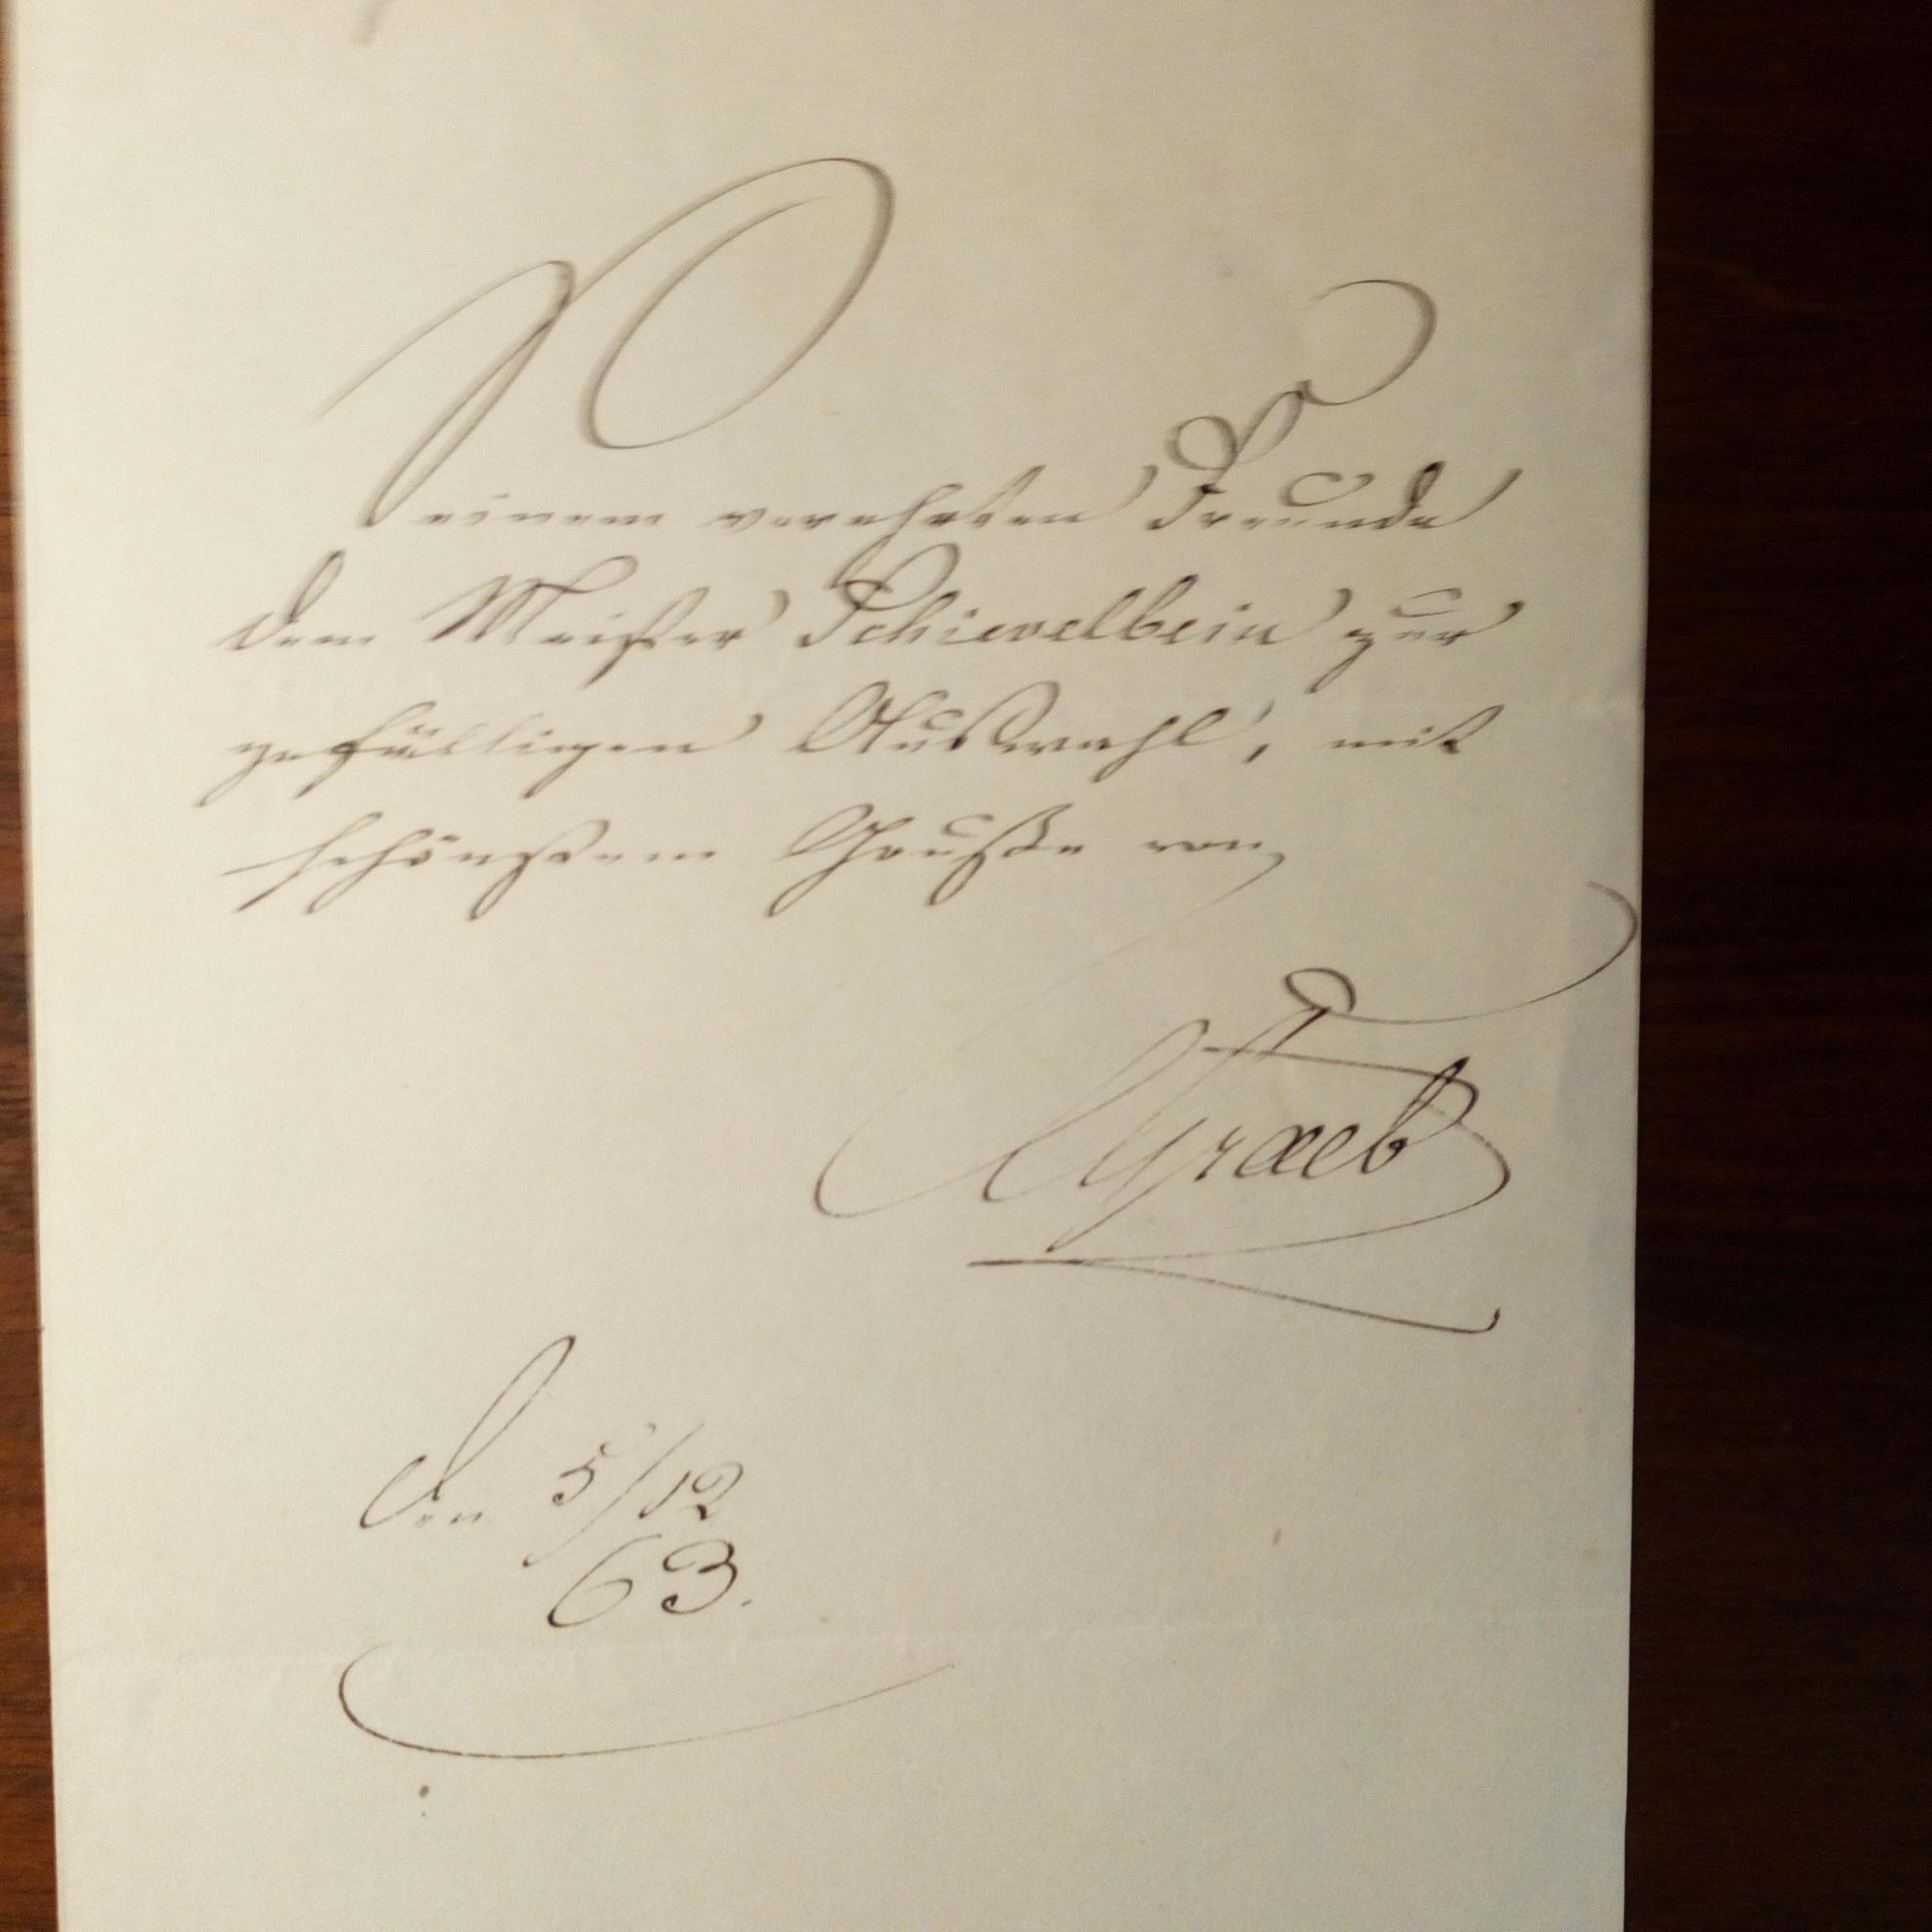 Seinem verehrten Freunde
dem Meister Schievelbein zur
gefälligen Auswahl, mit
schönstem Gruße von
CGraeb
Den 5/12
63.